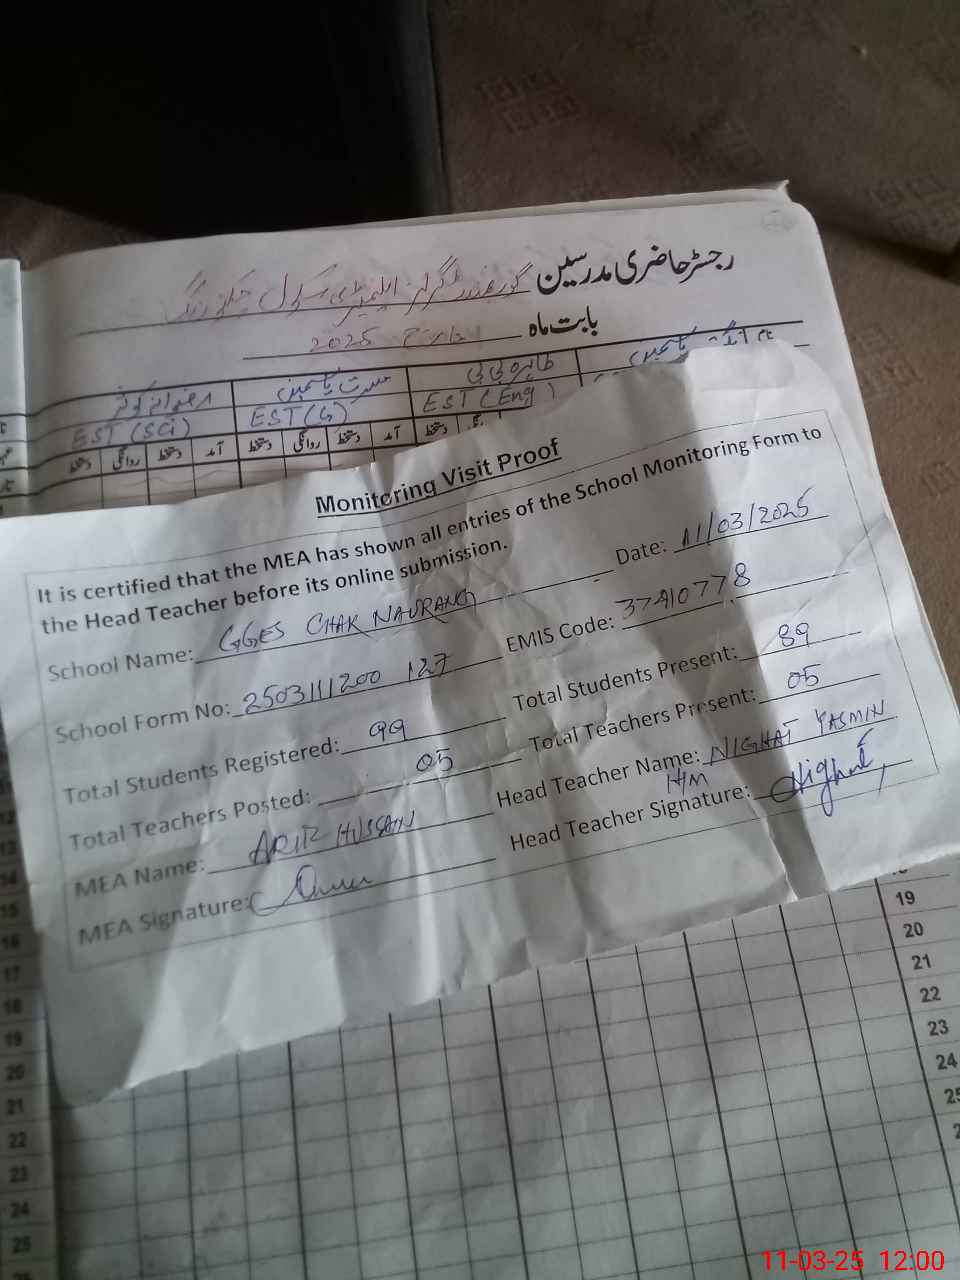 رجسٹر حاضری مدرسین گورنمنٹ گرلز ایلیمنٹری سکول چک نورنگ
بابت ماہ مارچ 2025
نام
طاہرہ بی بی
مسرت یاسمین
رضوانہ کوثر
EST (Eng)
EST (G)
EST (SCi)
دستخط روانگی دستخط آمد دستخط روانگی دستخط آمد دستخط
Monitoring Visit Proof
It is certified that the MEA has shown all entries of the School Monitoring Form to
the Head Teacher before its online submission.
Date: 11/03/2025
School Name: GGES CHAK NAURANG
EMIS Code: 37410778
School Form No: 2503111200 127
Total Students Present: 89
Total Students Registered: 99
Total Teachers Present: 05
Total Teachers Posted: 05
Head Teacher Name: NIGHAT YASMIN
H/M
MEA Name: HUSSAIN
Head Teacher Signature: Nighat
MEA Signature:
19
20
21
22
23
24
25
12
13
14
15
16
17
18
19
20
21
22
23
24
25
11-03-25 12:00